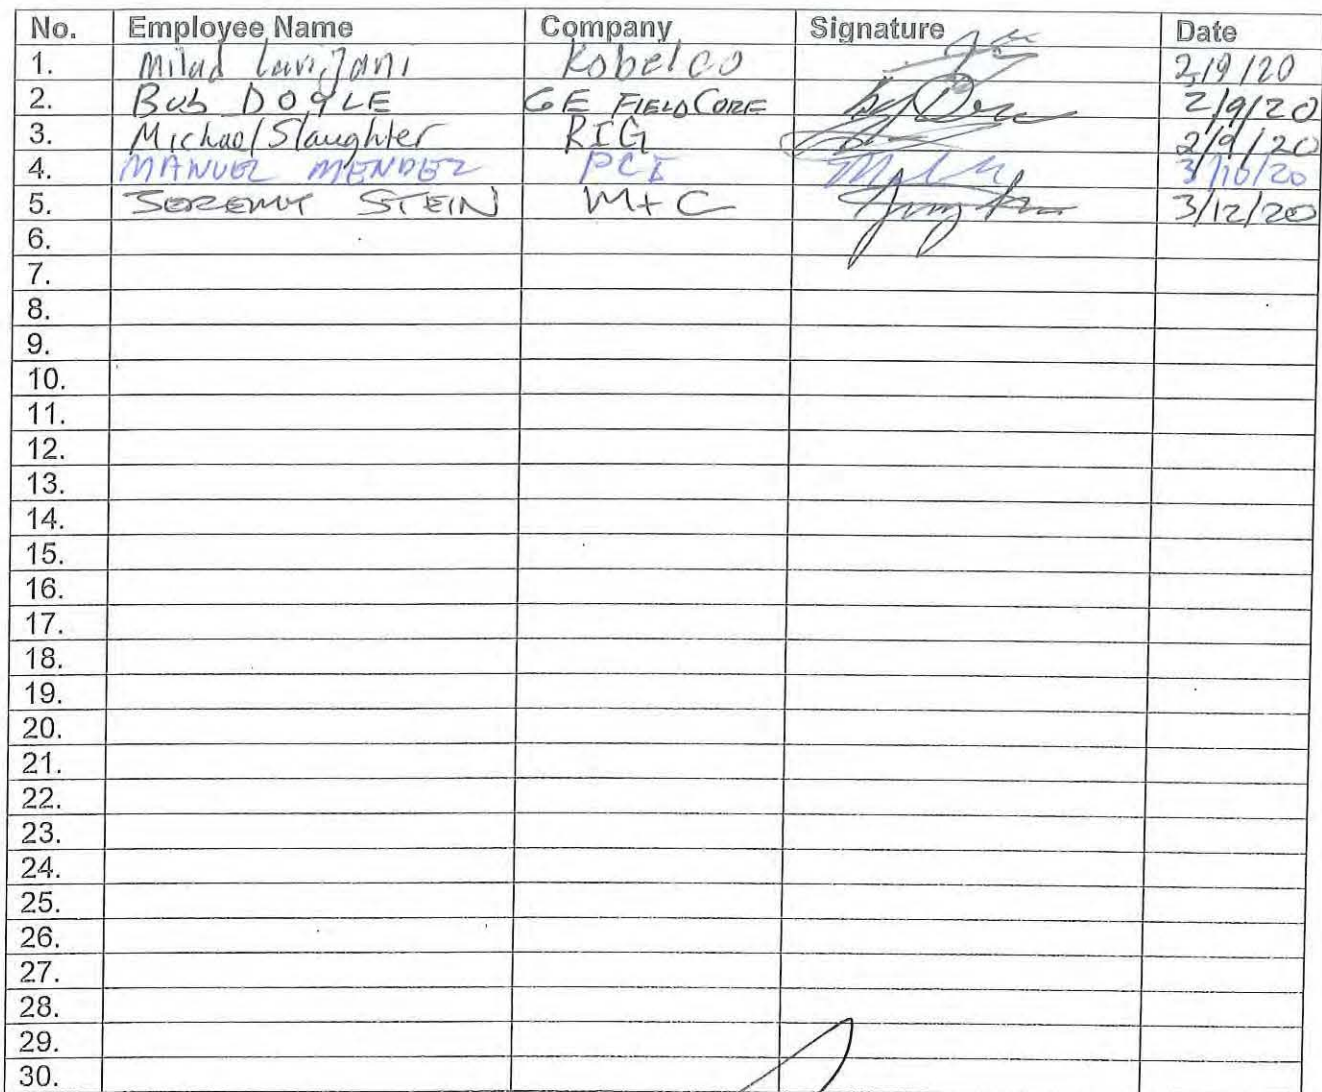 No. Employee Name Company Signature Date
1. Milad Lavijani Kobelco 2/9/20
2. Bob DOYLE GE FIELDCORE 2/9/20
3. Michael Slaughter RIG 2/9/20
4. MANUEL MENDEZ PCI 3/10/20
5. JEREMY STEIN M+C 3/12/20
6.
7.
8.
9.
10.
11.
12.
13.
14.
15.
16.
17.
18.
19.
20.
21.
22.
23.
24.
25.
26.
27.
28.
29.
30.